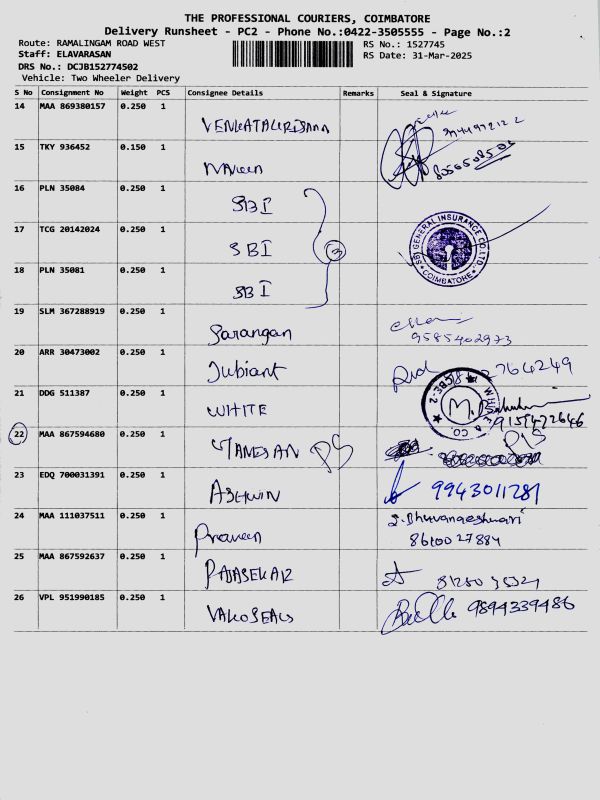 THE PROFESSIONAL COURIERS, COIMBATORE
Delivery Runsheet - PC2 - Phone No.:0422-3505555 - Page No.:2
Route: RAMALINGAM ROAD WEST
Staff: ELAVARASAN
DRS No.: DCJB152774502
Vehicle: Two Wheeler Delivery
RS No.: 1527745
RS Date: 31-Mar-2025
S No Consignment No Weight PCS Consignee Details Remarks Seal & Signature
14 MAA 869380157 0.250 1
15 TKY 936452 0.150 1 Naveen
8056508506
16 PLN 35084 0.250 1 SBI
17 TCG 20142024 0.250 1 SBI 3
SBI GENERAL INSURANCE CO. LTD. COIMBATORE
18 PLN 35081 0.250 1 SBI
19 SLM 367288919 0.250 1 Sarangan
9585402973
20 ARR 30473002 0.250 1 Jubiant
2764249
21 DDG 511387 0.250 1 WHITE
CBE-2
9159472646
22 MAA 867594680 0.250 1 DS
23 EDQ 700031391 0.250 1 ASHWIN 9943011281
24 MAA 111037511 0.250 1 Praveen J. Bhuvaneshwari
8610027884
25 MAA 867592637 0.250 1 RAJASEKAR
26 VPL 951990185 0.250 1 VALLOSEALS 9894339486